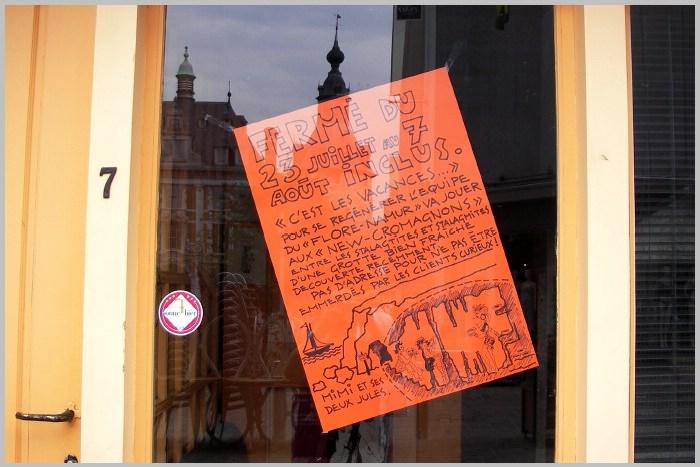 7
FERMÉ DU
23 JUILLET AU 7
AOÛT INCLUS.
« C'EST LES VACANCES...»
POUR SE RÉGÉNÉRER L'ÉQUIPE
DU « FLORE-NAMUR » VA JOUER
AUX « NEW-CROMAGNONS »
ENTRE LES STALACTITES ET STALAGMITES
D'UNE GROTTE BIEN FRAÎCHE
DÉCOUVERTE RÉCEMMENT.
PAS D'ADRESSE POUR NE PAS ÊTRE
EMMERDÉS PAR LES CLIENTS CURIEUX!
MIMI ET SES
DEUX JULES.